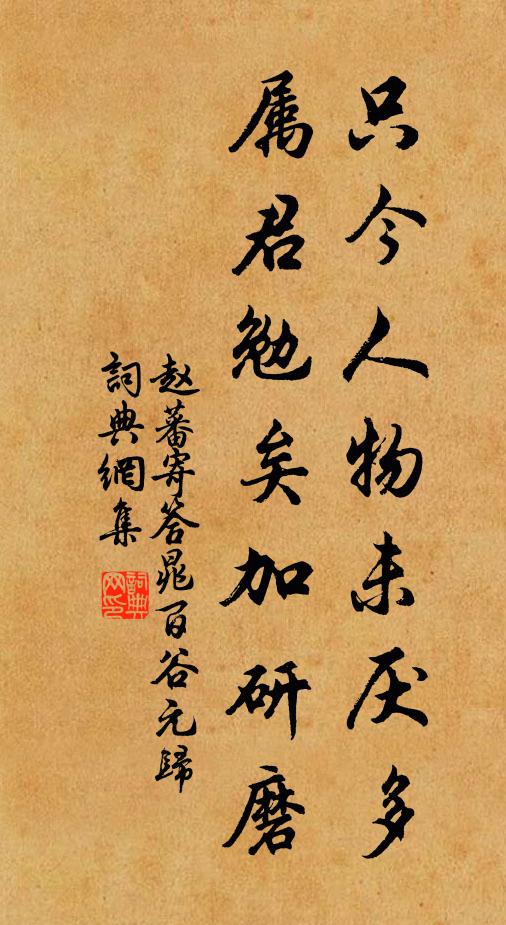 只今人物未厌多
属君勉矣加研磨
赵蕃寄答晁百谷元歸
詞典網集
詞典网印